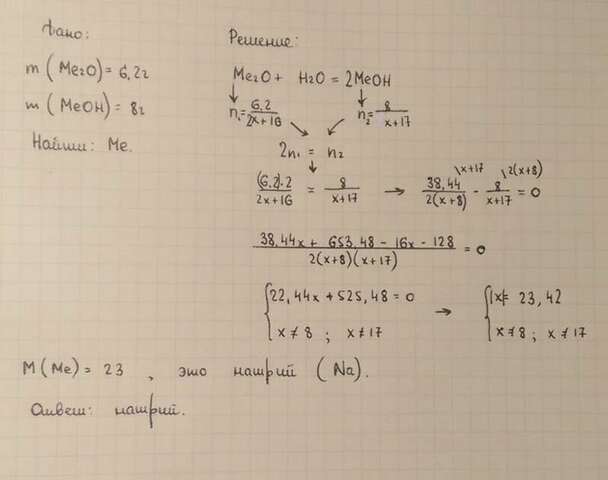 Дано:
Решение:
m (Me₂O) = 6,2г
m (MeOH) = 8г
Найти: Me.
Me₂O + H₂O = 2MeOH
n₁ = 6,2 / 2x+16    n₂ = 8 / x+17
2n₁ = n₂
(6,2)·2 / 2x+16 = 8 / x+17 → 38,44 / 2(x+8) \x+17 - 8 / x+17 \2(x+8) = 0
38,44x + 653,48 - 16x - 128 / 2(x+8)(x+17) = 0
{ 22,44x + 525,48 = 0 → { |x| = 23,42
x ≠ 8 ; x ≠ 17    x ≠ 8 ; x ≠ 17
M (Me) = 23 , это натрий (Na).
Ответ: натрий.